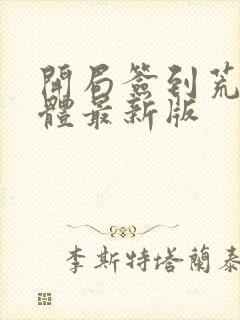 開局簽到荒
體最新版
李斯特塔蘭泰